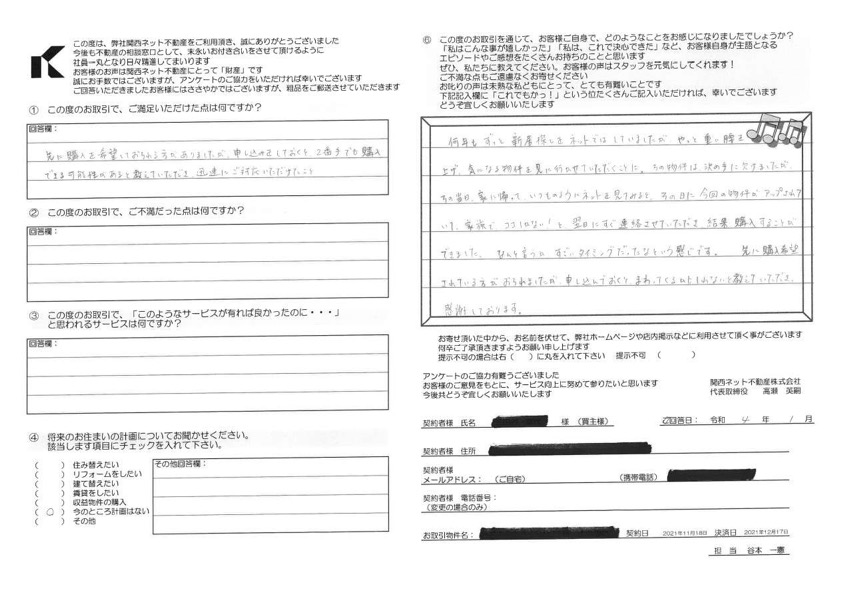 この度は、弊社関西ネット不動産をご利用頂き、誠にありがとうございました
今後も不動産の相談窓口として、末永いお付き合いをさせて頂けるように
社員一丸となり日々精進してまいります
お客様のお声は関西ネット不動産にとって「財産」です
誠にお手数ではございますが、アンケートのご協力をいただければ幸いでございます
ご回答いただきましたお客様にはささやかではございますが、粗品をご郵送させていただきます
① この度のお取引で、ご満足いただけた点は何ですか？
回答欄：
先に購入を希望しておられる方がありましたが、申し込みをしておくと、2番手でも購入
できる可能性があると教えていただき、迅速にご対応いただけたこと
② この度のお取引で、ご不満だった点は何ですか？
回答欄：
③ この度のお取引で、「このようなサービスが有れば良かったのに・・・」
と思われるサービスは何ですか？
回答欄：
④ 将来のお住まいの計画についてお聞かせください。
該当します項目にチェックを入れて下さい。
（　　）住み替えたい
（　　）リフォームをしたい
（　　）建て替えたい
（　　）賃貸をしたい
（　　）収益物件の購入
（ ○ ）今のところ計画はない
（　　）その他
その他回答欄：
⑥ この度のお取引を通じて、お客様ご自身で、どのようなことをお感じになりましたでしょうか？
「私はこんな事が嬉しかった」「私は、これで決心できた」など、お客様自身が主語となる
エピソードやご感想をたくさんお持ちのことと思います
ぜひ、私たちに教えてください。お客様の声はスタッフを元気にしてくれます！
ご不満な点もご遠慮なくお寄せください
お叱りの声は未熟な私どもにとって、とても有難いことです
下記記入欄に「これでもかっ！」という位たくさんご記入いただければ、幸いでございます
どうぞ宜しくお願いいたします
何年もずっと新居探しをネットではしていましたが、やっと重い腰を
上げ、気になる物件を見に行かせていただくことに。その物件は、決め手に欠けましたが、
その当日、家に帰って、いつものようにネットを見てみると、その日に今回の物件がアップされて
いて、家族で「ココしかない！」と翌日にすぐ連絡させていただき、結果 購入することが
できました。なんと言うか すごいタイミングだったなという感じです。 先に購入希望
されている方がおられましたが、申し込んでおくと まわってくるかもしれないと教えていただき、
感謝しております。
お寄せ頂いた中から、お名前を伏せて、弊社ホームページや店内掲示などに利用させて頂く事がございます
何卒ご了承頂きますようお願い申し上げます
提示不可の場合は右（　　）に丸を入れて下さい　提示不可（　　　）
アンケートのご協力有難うございました
お客様のご意見をもとに、サービス向上に努めて参りたいと思います
今後共どうぞ宜しくお願いいたします
関西ネット不動産株式会社
代表取締役　高瀬　英嗣
契約者様　氏名　様（買主様）　ご回答日：　令和　4　年　1　月
契約者様　住所
契約者様
メールアドレス：（ご自宅）　（携帯電話）
契約者様　電話番号：
（変更の場合のみ）
お取引物件名：　契約日　2021年11月18日　決済日　2021年12月17日
担　当　谷本　一憲